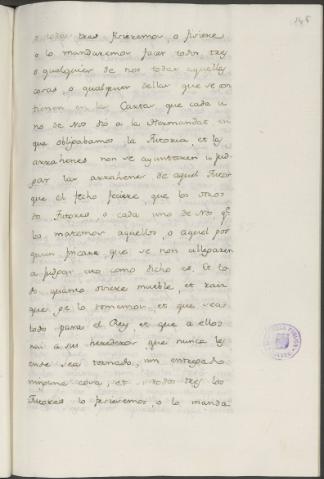 146
o todas tres ficieremos o ficiere
o lo mandaremos facer todos tres
o qualquier de nos todas aquellas
cosas, o qualquier dellas que se con
tienen en la Carta que cada u
no de Nos dió a la Hermandat en
que obligabamos la Tutoria, et los
arrahenes non se ayuntaren a jud
gar las arrahenes de aquel Tutor
que el fecho ficiere que los otros
dos Tutores o cada uno de Nos q.
los matemos aquellos, o aquel por
quien fincare que se non allegaren
a judgar esto como dicho es, et to
do quanto oviere mueble, et raiz
que ge lo tomemos, et que sea
todo para el Rey et que a ellos
nin a sus herederos que nunca les
ende sea tornado, nin entregado
ninguna cosa, et todos tres los
Tutores lo ficieremos o lo manda